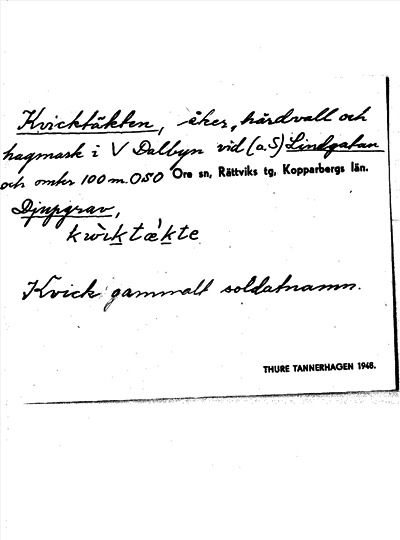 Kvicktäkten, åker, hårdvall och
hagmark i V Dalbyn vid (a.S) Lindgatan
och omkr 100 m. OSO Ore sn, Rättviks tg, Kopparbergs län.
Djupgrav,
kwìktæ̀kte
Kvick gammalt soldatnamn.
THURE TANNERHAGEN 1948.